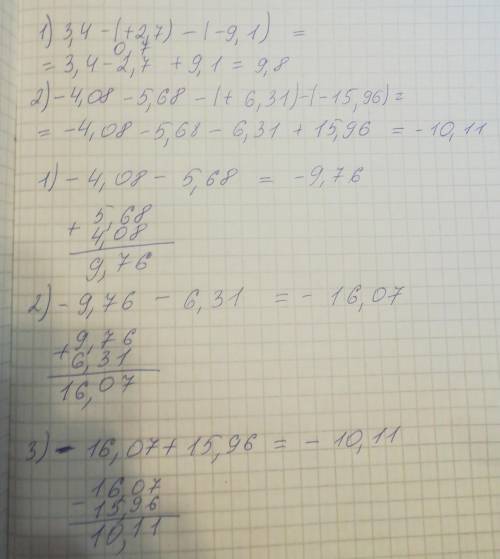 1) 3,4 - (+2,7) - (-9,1) =
0,7
= 3,4 - 2,7 + 9,1 = 9,8
2) -4,08 - 5,68 - (+ 6,31) - (-15,96) =
= -4,08 - 5,68 - 6,31 + 15,96 = -10,11
1) - 4,08 - 5,68 = -9,76
+ 5,68
4,08
9,76
2) - 9,76 - 6,31 = - 16,07
+ 9,76
6,31
16,07
3) - 16,07 + 15,96 = - 10,11
- 16,07
15,96
10,11